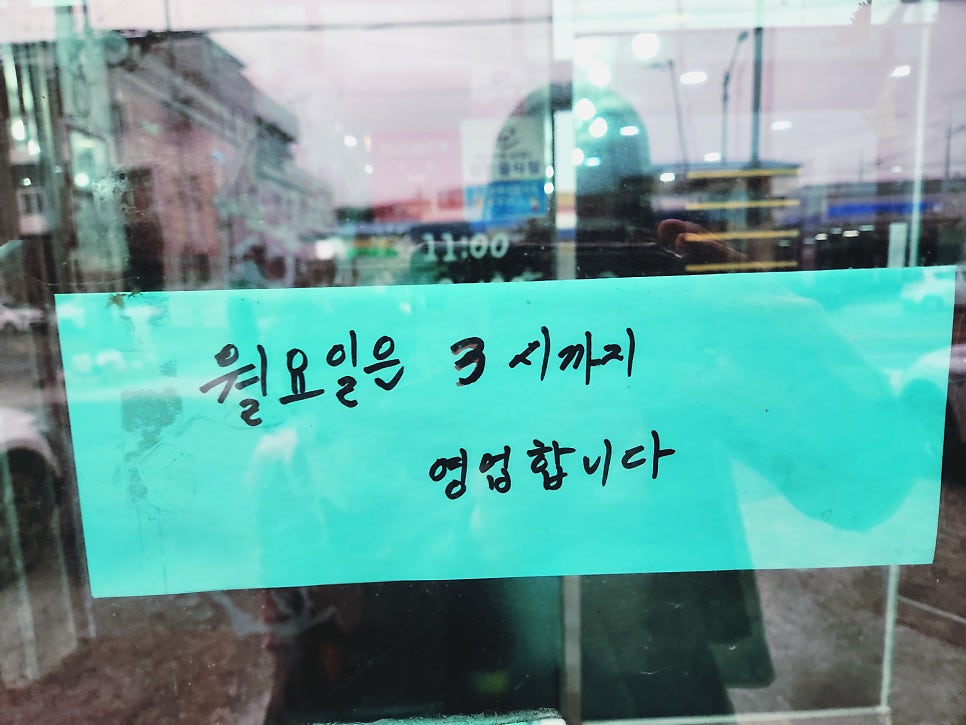 11:00
월요일은 3시까지
영업합니다